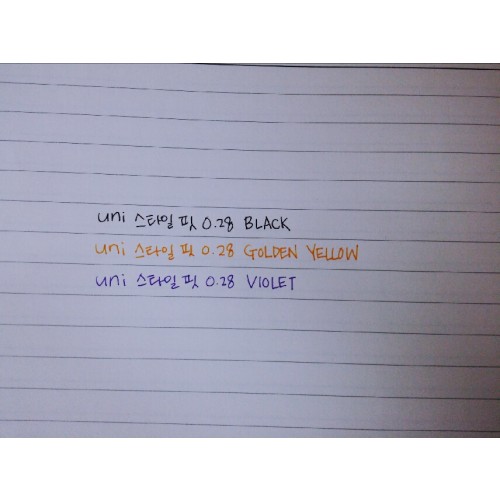 uni 스타일 핏 0.28 BLACK
uni 스타일 핏 0.28 GOLDEN YELLOW
uni 스타일 핏 0.28 VIOLET